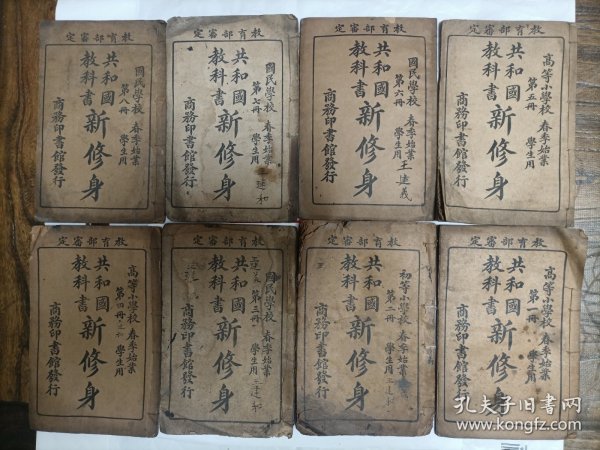 教育部審定
國民學校 春季始業
第八冊 學生用
共和國
教科書
新修身
商務印書館發行
教育部審定
國民學校 春季始業
第七冊 學生用
王建和
共和國
教科書
新修身
商務印書館發行
教育部審定
國民學校 春季始業
第六冊 學生用
王建義
共和國
教科書
新修身
商務印書館發行
教育部審定
高等小學校 春季始業
第五冊 學生用
共和國
教科書
新修身
商務印書館發行
教育部審定
高等小學校 春季始業
第四冊 學生用
共和國
教科書
新修身
商務印書館發行
教育部審定
國民學校 春季始業
第三冊 學生用
王建和
共和國
教科書
新修身
商務印書館發行
教育部審定
初等小學校 春季始業
第二冊 學生用
王建和
共和國
教科書
新修身
商務印書館發行
教育部審定
高等小學校 春季始業
第一冊 學生用
共和國
教科書
新修身
商務印書館發行
孔夫子旧书网
www.kongfz.com